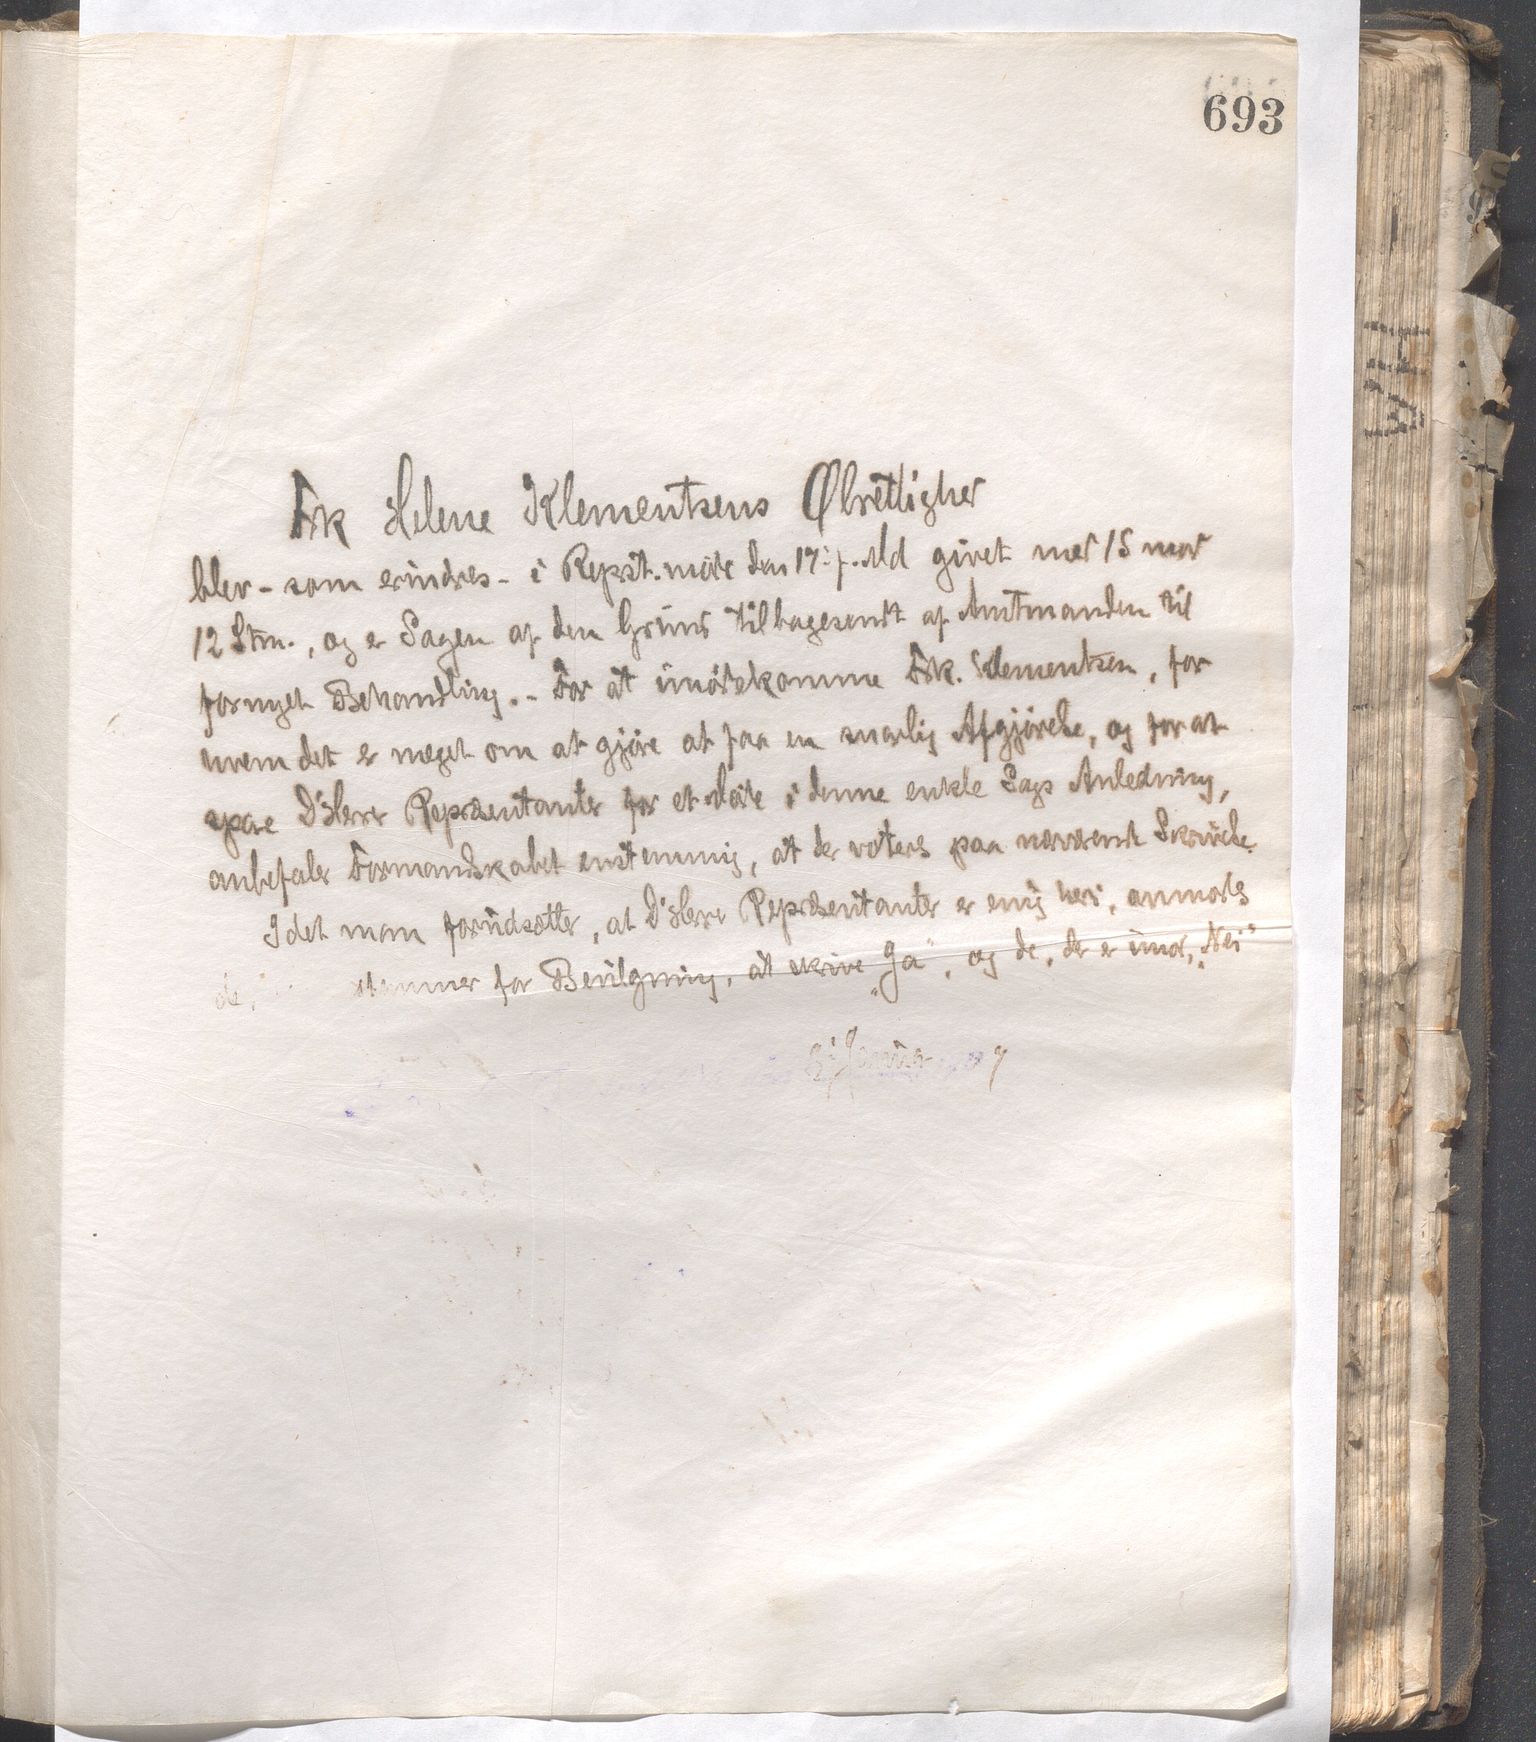 693
Frk Helene Klementsens Ølrettigher
blev - som erindres - i Reprst. møte den 17: f. Md givet med 15 mod
12 Stm., og er Sagen af den Grund tilbagesendt af Amtmanden til
fornyet Behandling. - For at imøtekomme Frk. Klementsen, for
hvem det er meget om at gjøre at faa en snarlig Afgjørelse, og for at
spare D'Herr Repræsentanter for et Møte i denne enkle Sags Anledning,
anbefaler Formandskabet enstemmig, at der voteres paa nærværende Skrivelse.
Idet man forudsætter, at D'Herr Repræsentanter er enig heri, anmodes
de, stemmer for Bevilgning, at skrive „Ja", og de, der er imod, „Nei"